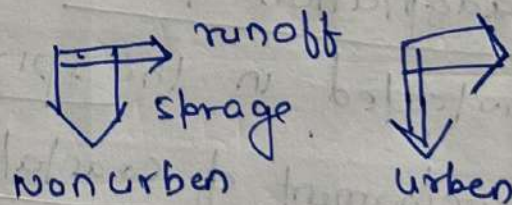 runoff
sprage.
Nonurben
urben